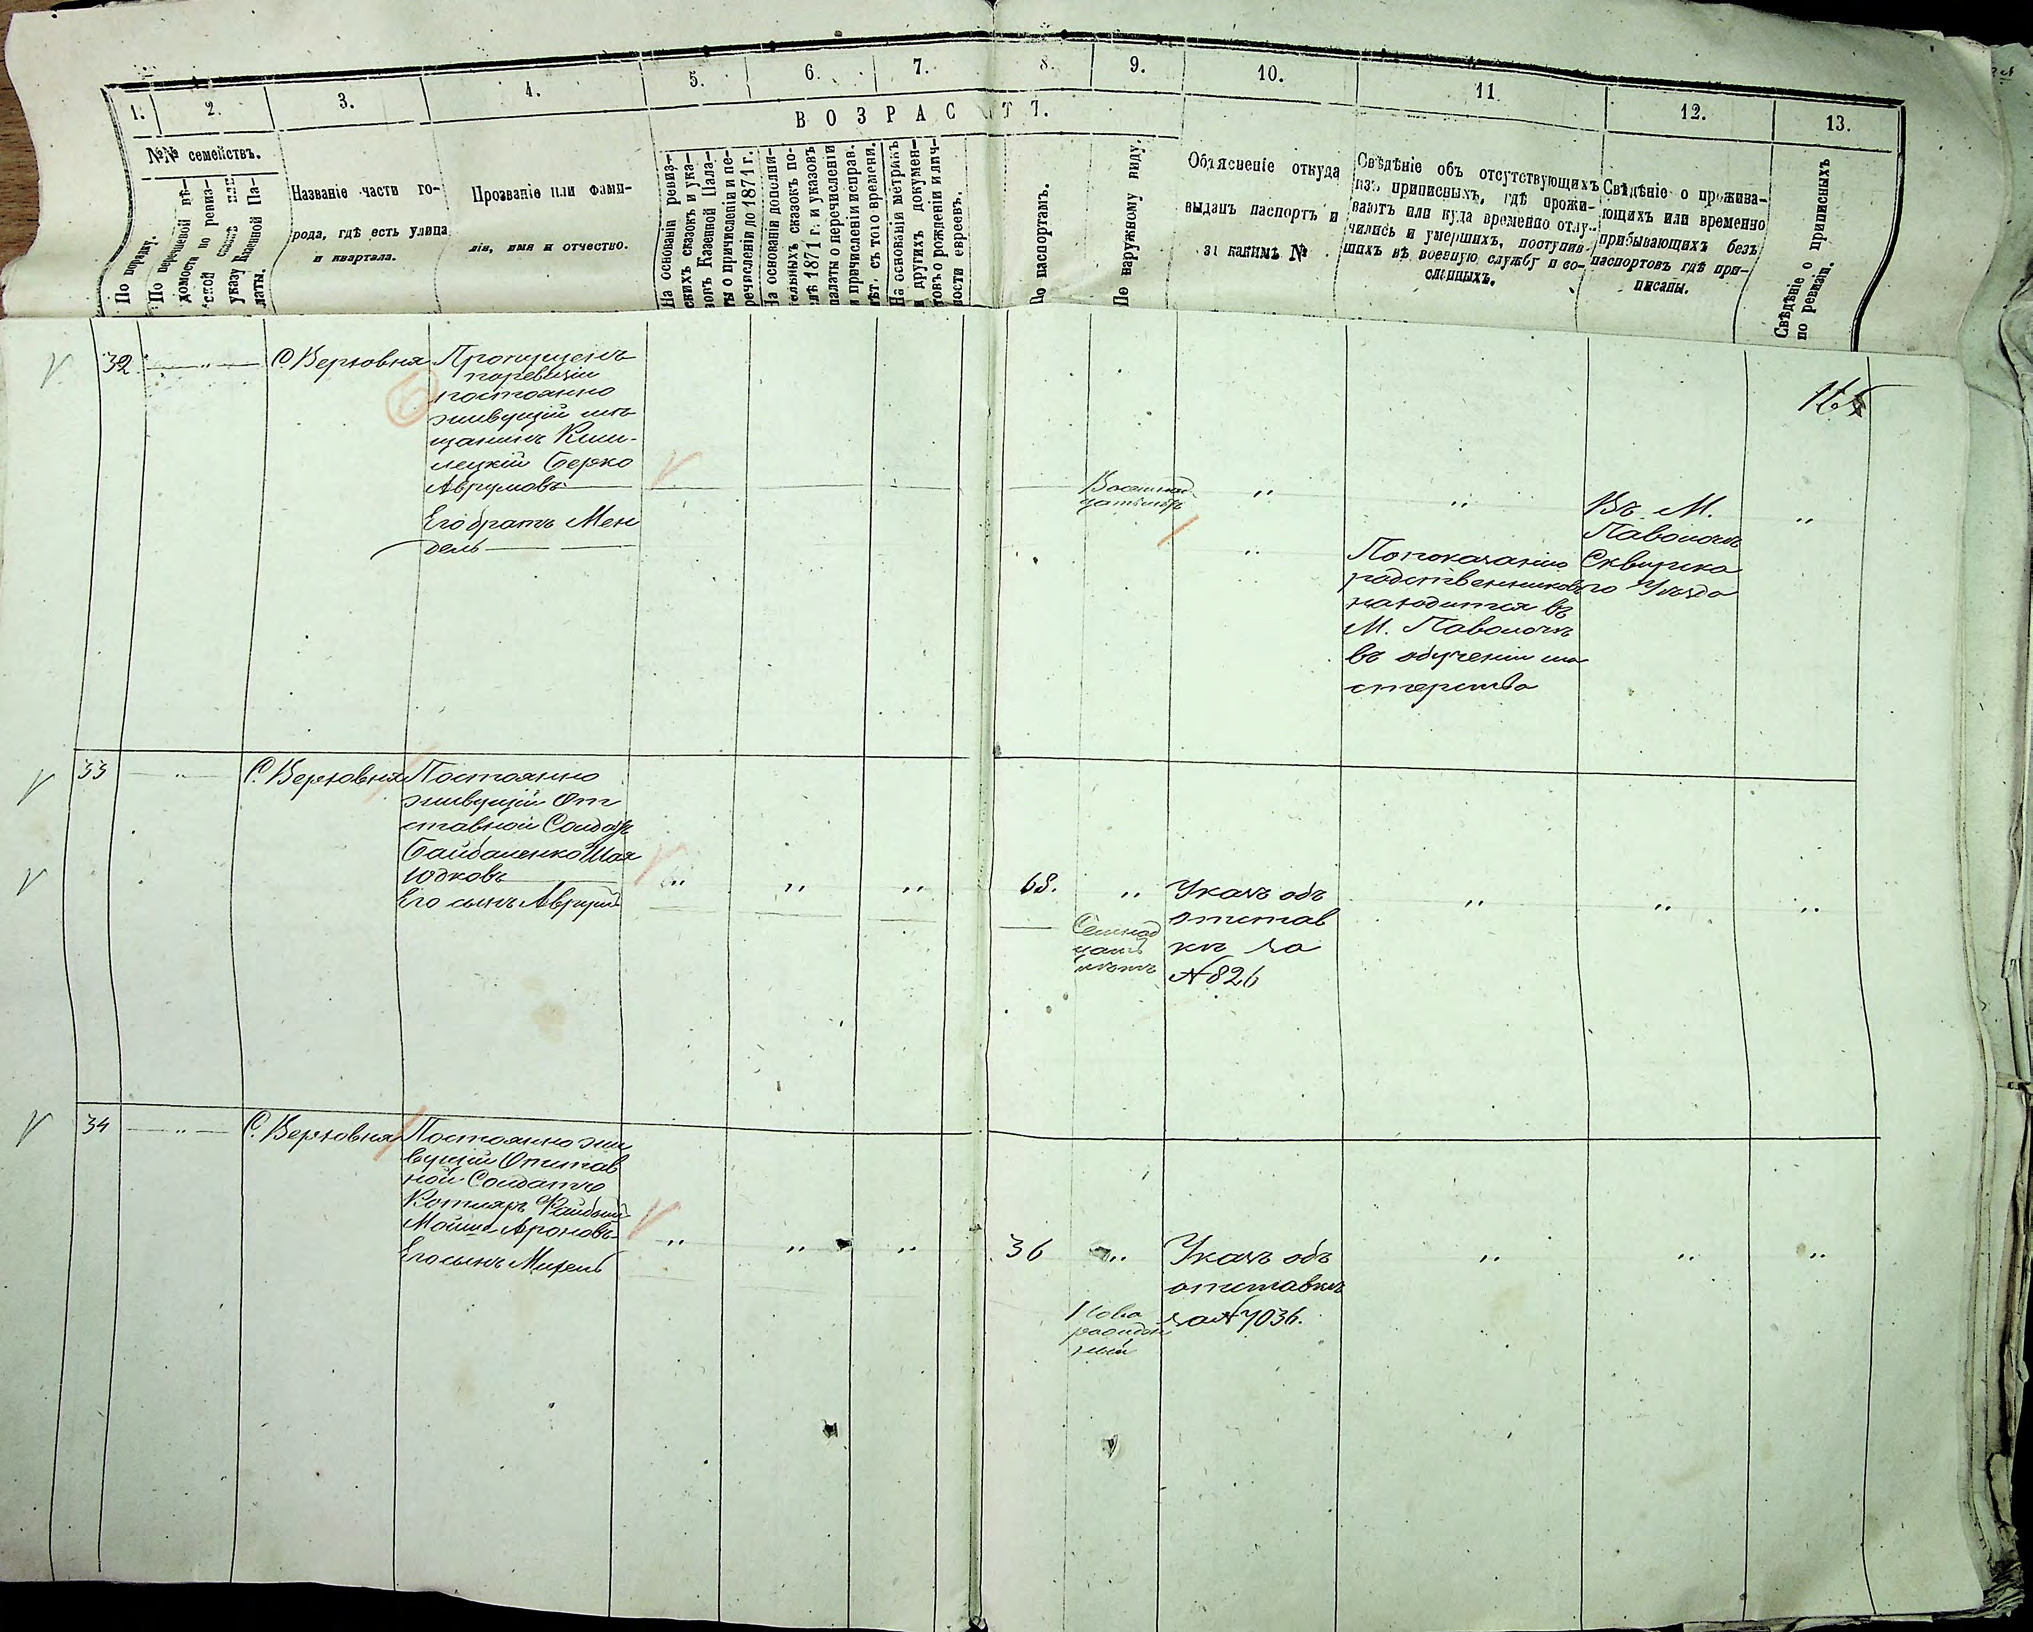 1. 2. 3. 4. 5. 6. 7. 8. 9. 10. 11. 12. 13.
ВОЗРАСТЪ.
№№ семействъ.
По порядку.
По перошневой вѣ-
домости по ревиз-
ской сказкѣ или
указу Казенной Па-
латы.
Названіе части го-
рода, гдѣ есть улица
и квартала.
Прозваніе или фами-
лія, имя и отчество.
На основаніи ревиз-
скихъ сказокъ и ука-
зовъ Казенной Пала-
ты о причисленіи и пе-
речисленіи до 1871 г.
На основаніи дополни-
тельныхъ сказокъ по-
слѣ 1871 г. и указовъ
палаты о перечисленіи
и причисленіи исправ.
лѣт. съ того времени.
На основаніи метрикъ
и другихъ докумен-
товъ о рожденіи и лич-
ности евреевъ.
По паспортамъ.
По наружному виду.
Объясненіе откуда
выданъ паспортъ и
за какимъ №
Свѣдѣніе объ отсутствующихъ
изъ приписныхъ, гдѣ прожи-
ваютъ или куда временно отлу-
чились и умершихъ, поступив-
шихъ въ военную службу и со-
сланныхъ.
Свѣдѣніе о прожива-
ющихъ или временно
прибывающихъ безъ
паспортовъ гдѣ при-
писаны.
Свѣдѣніе о приписныхъ
по ревизіи.
32 " С. Верховня
Пропущенъ
поревизіи
постоянно
живущій мѣ
щанинъ Кши-
лецкій Берко
Аврумовъ
Его братъ Мен
дель
Восемнад
цать лѣтъ
" "
Въ М.
Паволочѣ
Сквирска
го Уѣзда
"
"
Попоказанію
родственниковъ
находится въ
М. Паволочѣ
въ обученіи ма
стерства
33 " С. Верховня
Постоянно
живущій От
ставной Солдатъ
Байбаленко Шая
Юдковъ
Его сынъ Аврумъ
" " "
68. "
Указъ объ
отстав
кѣ за
№ 826
" " "
Семнад
цать
лѣтъ
34 " С. Верховня
Постоянно жи
вущій Отстав
ной Солдатъ
Котляръ Файбыш
Мошко Ароновъ
Его сынъ Михель
" " "
36 "
Указъ объ
отставкѣ
за № 7036.
" " "
Ново
рожден
ный